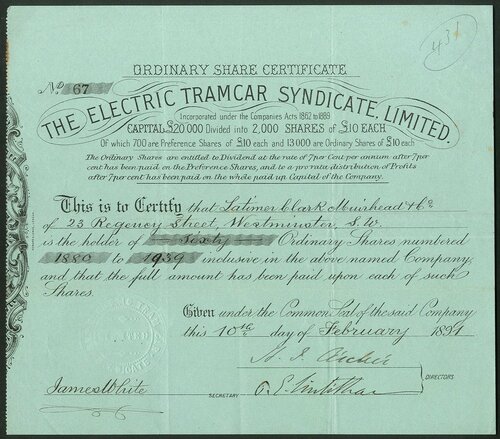 431
ORDINARY SHARE CERTIFICATE
No 67
THE ELECTRIC TRAMCAR SYNDICATE, LIMITED.
Incorporated under the Companies Acts 1862 to 1889
CAPITAL £20 000 Divided into 2,000 SHARES of £10 EACH
Of which 700 are Preference Shares of £10 each and 13000 are Ordinary Shares of £10 each
The Ordinary Shares are entitled to Dividend at the rate of 7 per Cent per annum after 7 per
cent has been paid on the Preference Shares, and to a pro rata distribution of Profits
after 7 per cent has been paid on the whole paid up Capital of the Company.
This is to Certify that Latimer Clark Muirhead & Co
of 23 Regency Street, Westminster, S.W.
is the holder of Sixty Ordinary Shares numbered
1880 to 1939 inclusive in the above named Company
and that the full amount has been paid upon each of such
Shares.
Given under the Common Seal of the said Company
this 10th day of February 1891
DIRECTORS
James White
SECRETARY